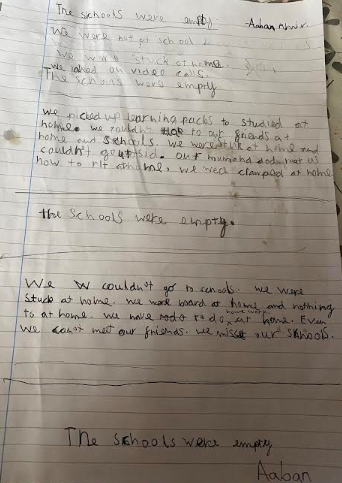 The schools were empty -Aaban
We were not at school
We were stuck at home.
we talked on video calls.
The schools were empty
We picked up learning packs to studied at
home. we couldn't to our friends at
home and schools. We were at home and
couldn't go outside. out mum and dad at us
how to at home, we were clamped at home
the schools were empty.
We couldn't go to schools. We were
stuck at home. we were board at home and nothing
home work
to at home. We have to do at home. Even
We can't meet our friends. We miss our schools.
The schools were empty
Aaban